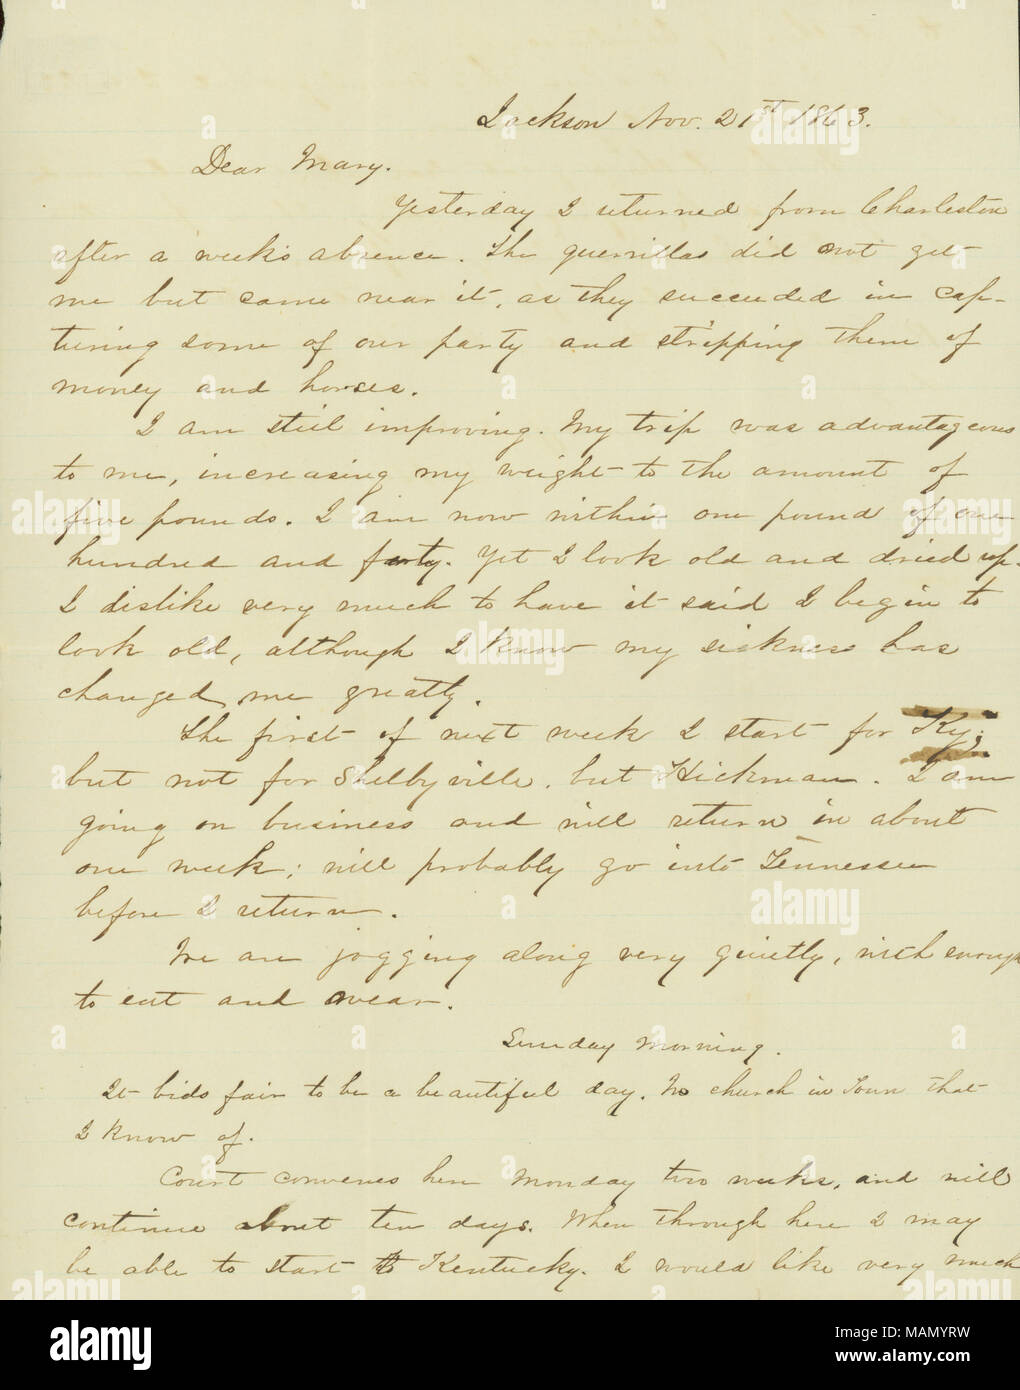 Jackson Nov. 21st 1863.
Dear Mary.
Yesterday I returned from Charleston
after a week's absence. The guerrillas did not get
me but came near it, as they succeeded in cap-
turing some of our party and stripping them of
money and horses.
I am still improving. My trip was advantageous
to me, increasing my weight to the amount of
five pounds. I am now within one pound of one
hundred and forty. Yet I look old and dried up.
I dislike very much to have it said I begin to
look old, although I know my sickness has
changed me greatly.
The first of next week I start for Ky;
but not for Shelbyville, but Hickman. I am
going on business and will return in about
one week; will probably go into Tennessee
before I return.
We are jogging along very quietly, with enough
to eat and wear.
Sunday morning.
It bids fair to be a beautiful day. No church in Town that
I know of.
Court convenes here Monday two weeks, and will
continue about ten days. When through here I may
be able to start to Kentucky. I would like very much
alamy
Image ID: MAMYRW
www.alamy.com